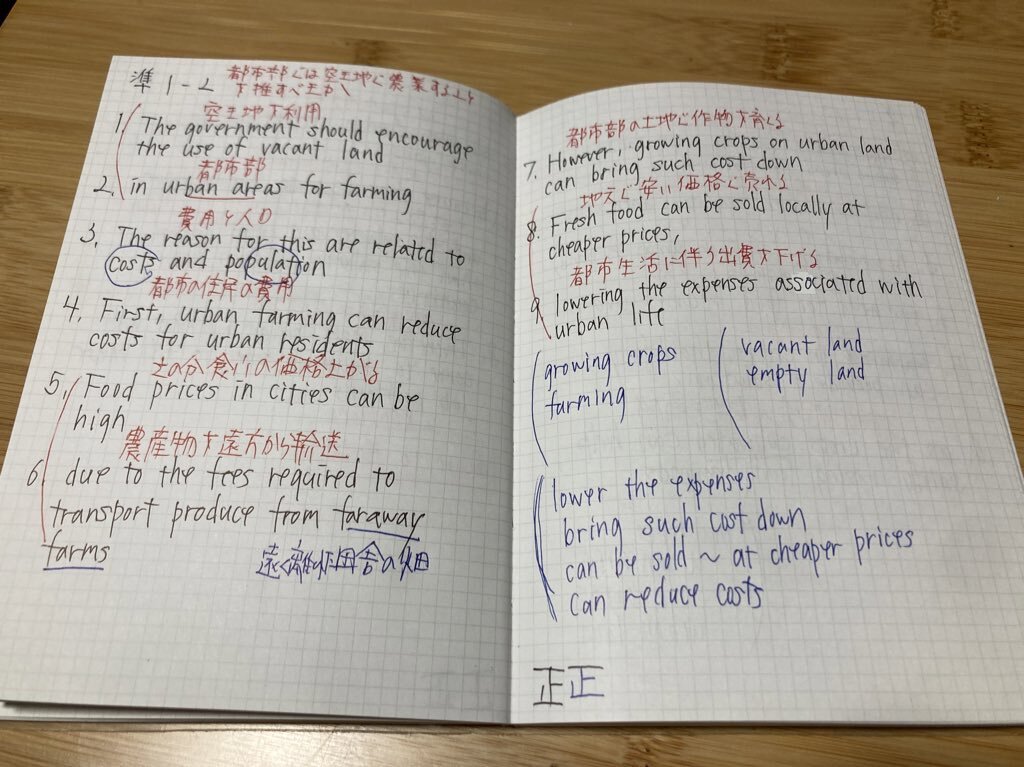 準1-2 都市部では空き地で農業すること
を推すべきか
空き地を利用
1. The government should encourage
the use of vacant land
都市部
2. in urban areas for farming
費用と人口
3. The reason for this are related to
costs and population
都市の住民の費用
4. First, urban farming can reduce
costs for urban residents
食い の価格上がる
5. Food prices in cities can be
high
農産物を遠方から輸送
6. due to the fees required to
transport produce from faraway
farms
遠く離れた田舎の畑
都市部の土地で作物を育てる
7. However, growing crops on urban land
can bring such cost down
地元で安い価格で売れる
8. Fresh food can be sold locally at
cheaper prices,
都市生活に伴う出費を下げる
9 lowering the expenses associated with
urban life
growing crops
farming
vacant land
empty land
lower the expenses
bring such cost down
can be sold ~ at cheaper prices
can reduce costs
正正